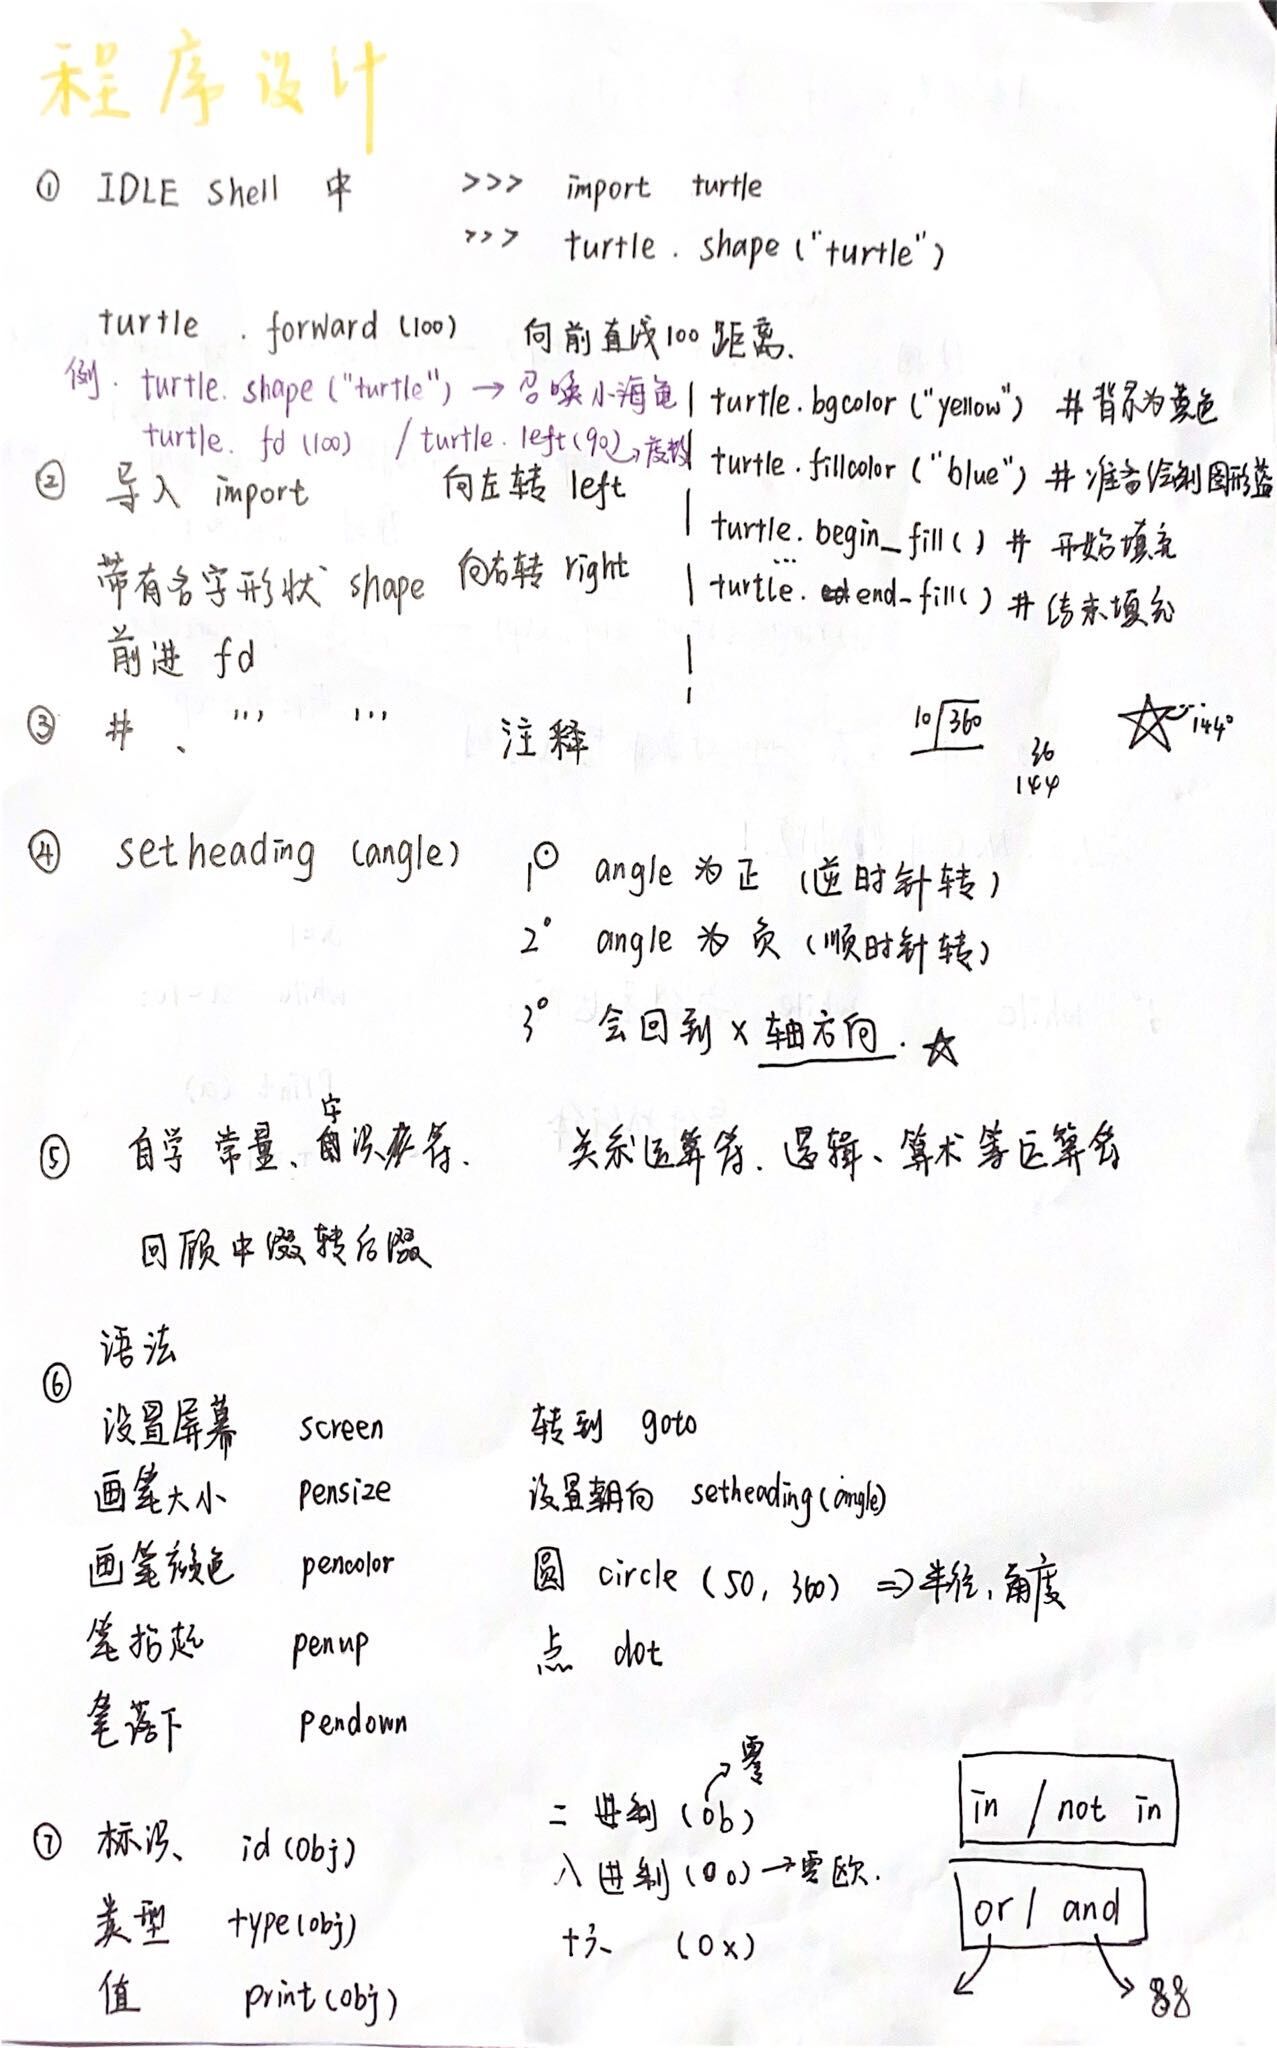 程序设计
① IDLE shell 中 >>> import turtle
>>> turtle.shape("turtle")
turtle.forward(100) 向前直线100距离.
例. turtle.shape("turtle") → 召唤小海龟
turtle.fd(100) / turtle.left(90)→度数
turtle.bgcolor("yellow") # 背景为黄色
turtle.fillcolor("blue") # 准备绘制图形蓝
turtle.begin_fill() # 开始填充
...
turtle.end_fill() # 结束填充
② 导入 import 向左转 left
带有名字形状 shape 向右转 right
前进 fd
③ #、 ''' ''' 注释
10 360
36
144
144°
④ setheading (angle) 1° angle 为正 (逆时针转)
2° angle 为负 (顺时针转)
3° 会回到 x 轴方向. ☆
⑤ 自学 常量、 字 关系运算符. 逻辑、算术等运算符
回顾中缀转后缀
⑥ 语法
设置屏幕 screen 转到 goto
画笔大小 pensize 设置朝向 setheading(angle)
画笔颜色 pencolor 圆 circle (50, 360) ⇒ 半径, 角度
笔抬起 penup 点 dot
笔落下 pendown
⑦ 标识、 id(obj) 二进制 (0b) → 零
类型 type(obj) 八进制 (0o) → 零欧.
值 print(obj) 十六 (0x)
in / not in
or / and